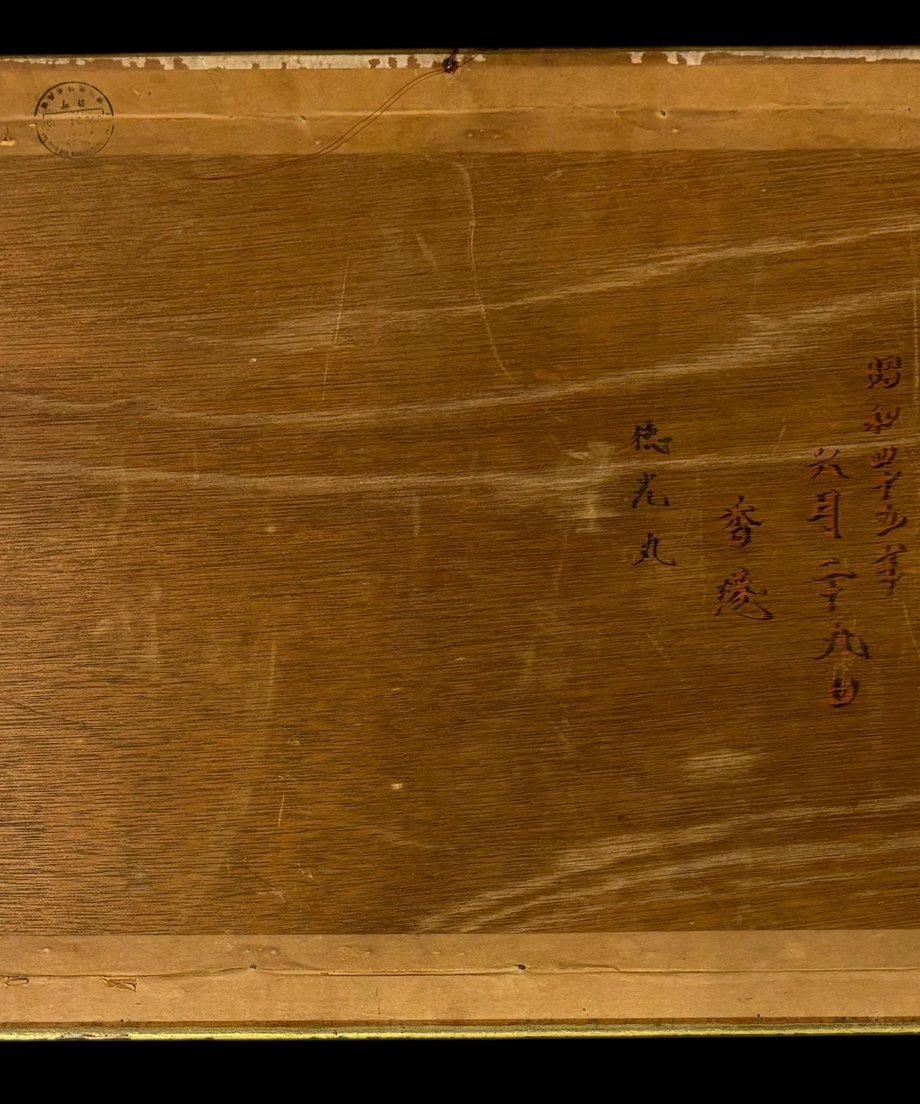 昭和四十五年
六月二十九日
香港
徳光丸